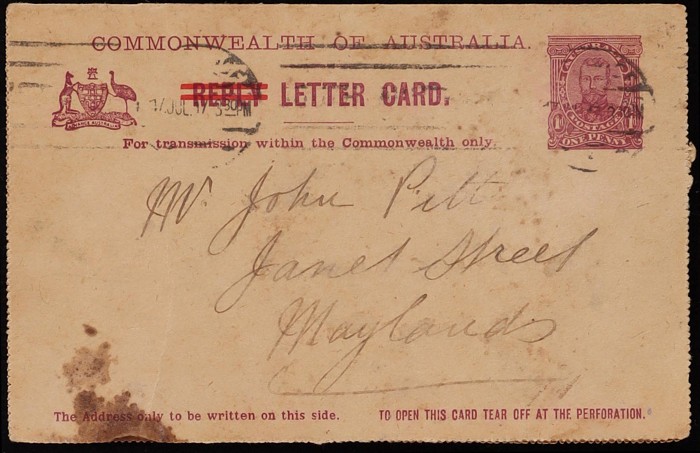 COMMONWEALTH OF AUSTRALIA.
REPLY LETTER CARD.
JUL 17
PM
For transmission within the Commonwealth only.
AUSTRALIA
POSTAGE
ONE PENNY
ADVANCE AUSTRALIA
Mr John Pitt
Janet Street
Maylands
The Address only to be written on this side.
TO OPEN THIS CARD TEAR OFF AT THE PERFORATION.